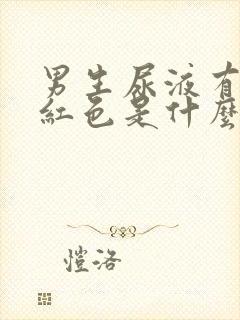 男生尿液有
紅色是什麼
愷洛